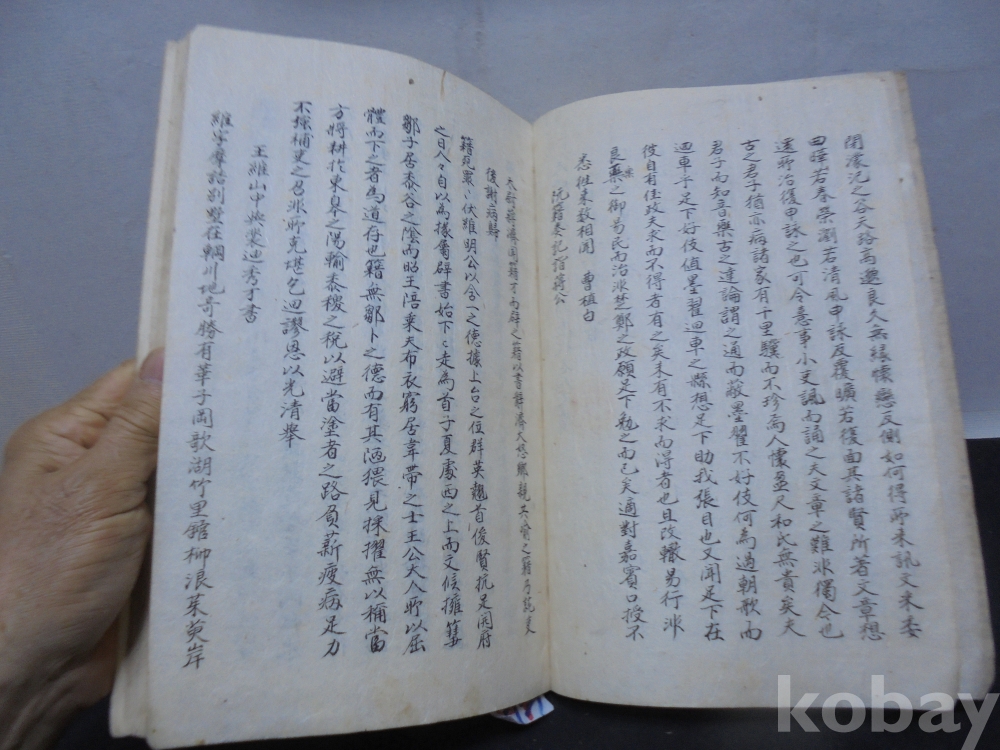 閉濛汜之谷天路高邈良久無緣懷戀反側如何得所来訊文采委
曰曄若春榮瀏若清風申詠反覆曠若復面其諸賢所著文章想
還所治復申詠之也可令憙事小吏諷而誦之夫文章之難非獨今也
古之君子猶亦病諸家有千里驥而不珍焉人懷盈尺和氏無貴矣夫
君子而知音樂古之達論謂之通而蔽墨翟不好伎何為過朝歌而
迴車乎足下好伎值墨翟迴車之縣想足下助我張目也又聞足下在
彼自有佳政夫求而不得者有之矣未有不求而得者也且改轍易行非
良樂之御易民而治非楚鄭之政願足下勉之而已矣適對嘉賓口授不
悉往来数相聞　曹植白
阮籍奏記詣蔣公
後謝病歸
籍死罪〻伏惟明公以含一之德據上台之位群英翹首俊賢抗足開府
之日人々自以為掾屬辟書始下〻走為首子夏處西之上而文侯擁篲
鄒子居黍谷之陰而昭王陪乗夫布衣窮居韋帶之士王公大人所以屈
體而下之者為道存也籍無鄒卜之德而有其陋猥見採擢無以稱當
方将耕於東皋之陽輸黍稷之稅以避當塗者之路負薪疲病足力
不彊補吏之召非所克堪乞迴謬恩以光清舉
王維山中與裴迪秀才書
維字摩詰別墅在輞川地奇勝有華子岡欹湖竹里舘柳浪茱萸岸
kobay